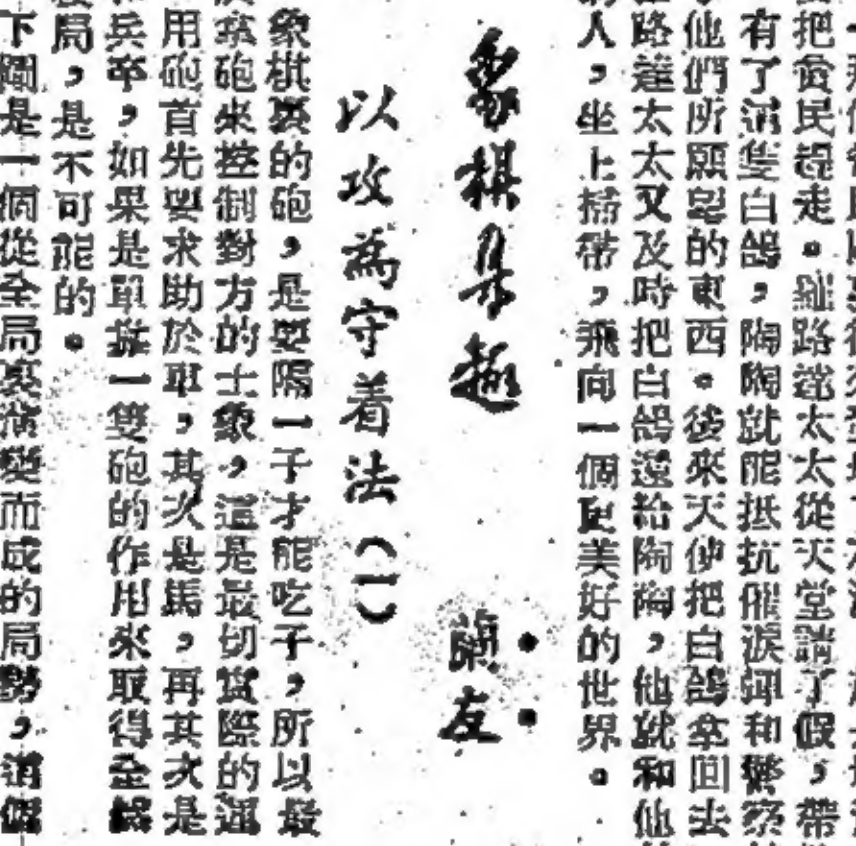 把貧民趕走。紐路達太太從天堂請了假,帶
有了這隻白鴿,陶陶就能抵抗催淚彈和警察
他們所願望的東西。後來天使把白鴿拿回去
路達太太又及時把白鴿還給陶陶,他就和他
人,坐上掃帚,飛向一個更美好的世界。
象棋集趣
蘭友
以攻為守着法(一)
象棋裏的砲,是要隔一子才能吃子,所以最
拿砲來控制對方的士象,這是最切實際的運
用砲首先要求助於車,其次是馬,再其次是
兵卒,如果是單靠一雙砲的作用來取得全
局,是不可能的。
下圖是一個從全局裏演變而成的局勢,這個